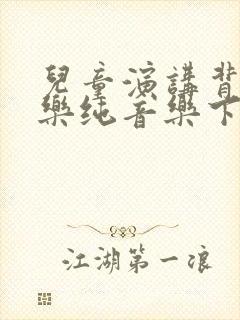 兒童演講背
樂純音樂下
江湖第一浪